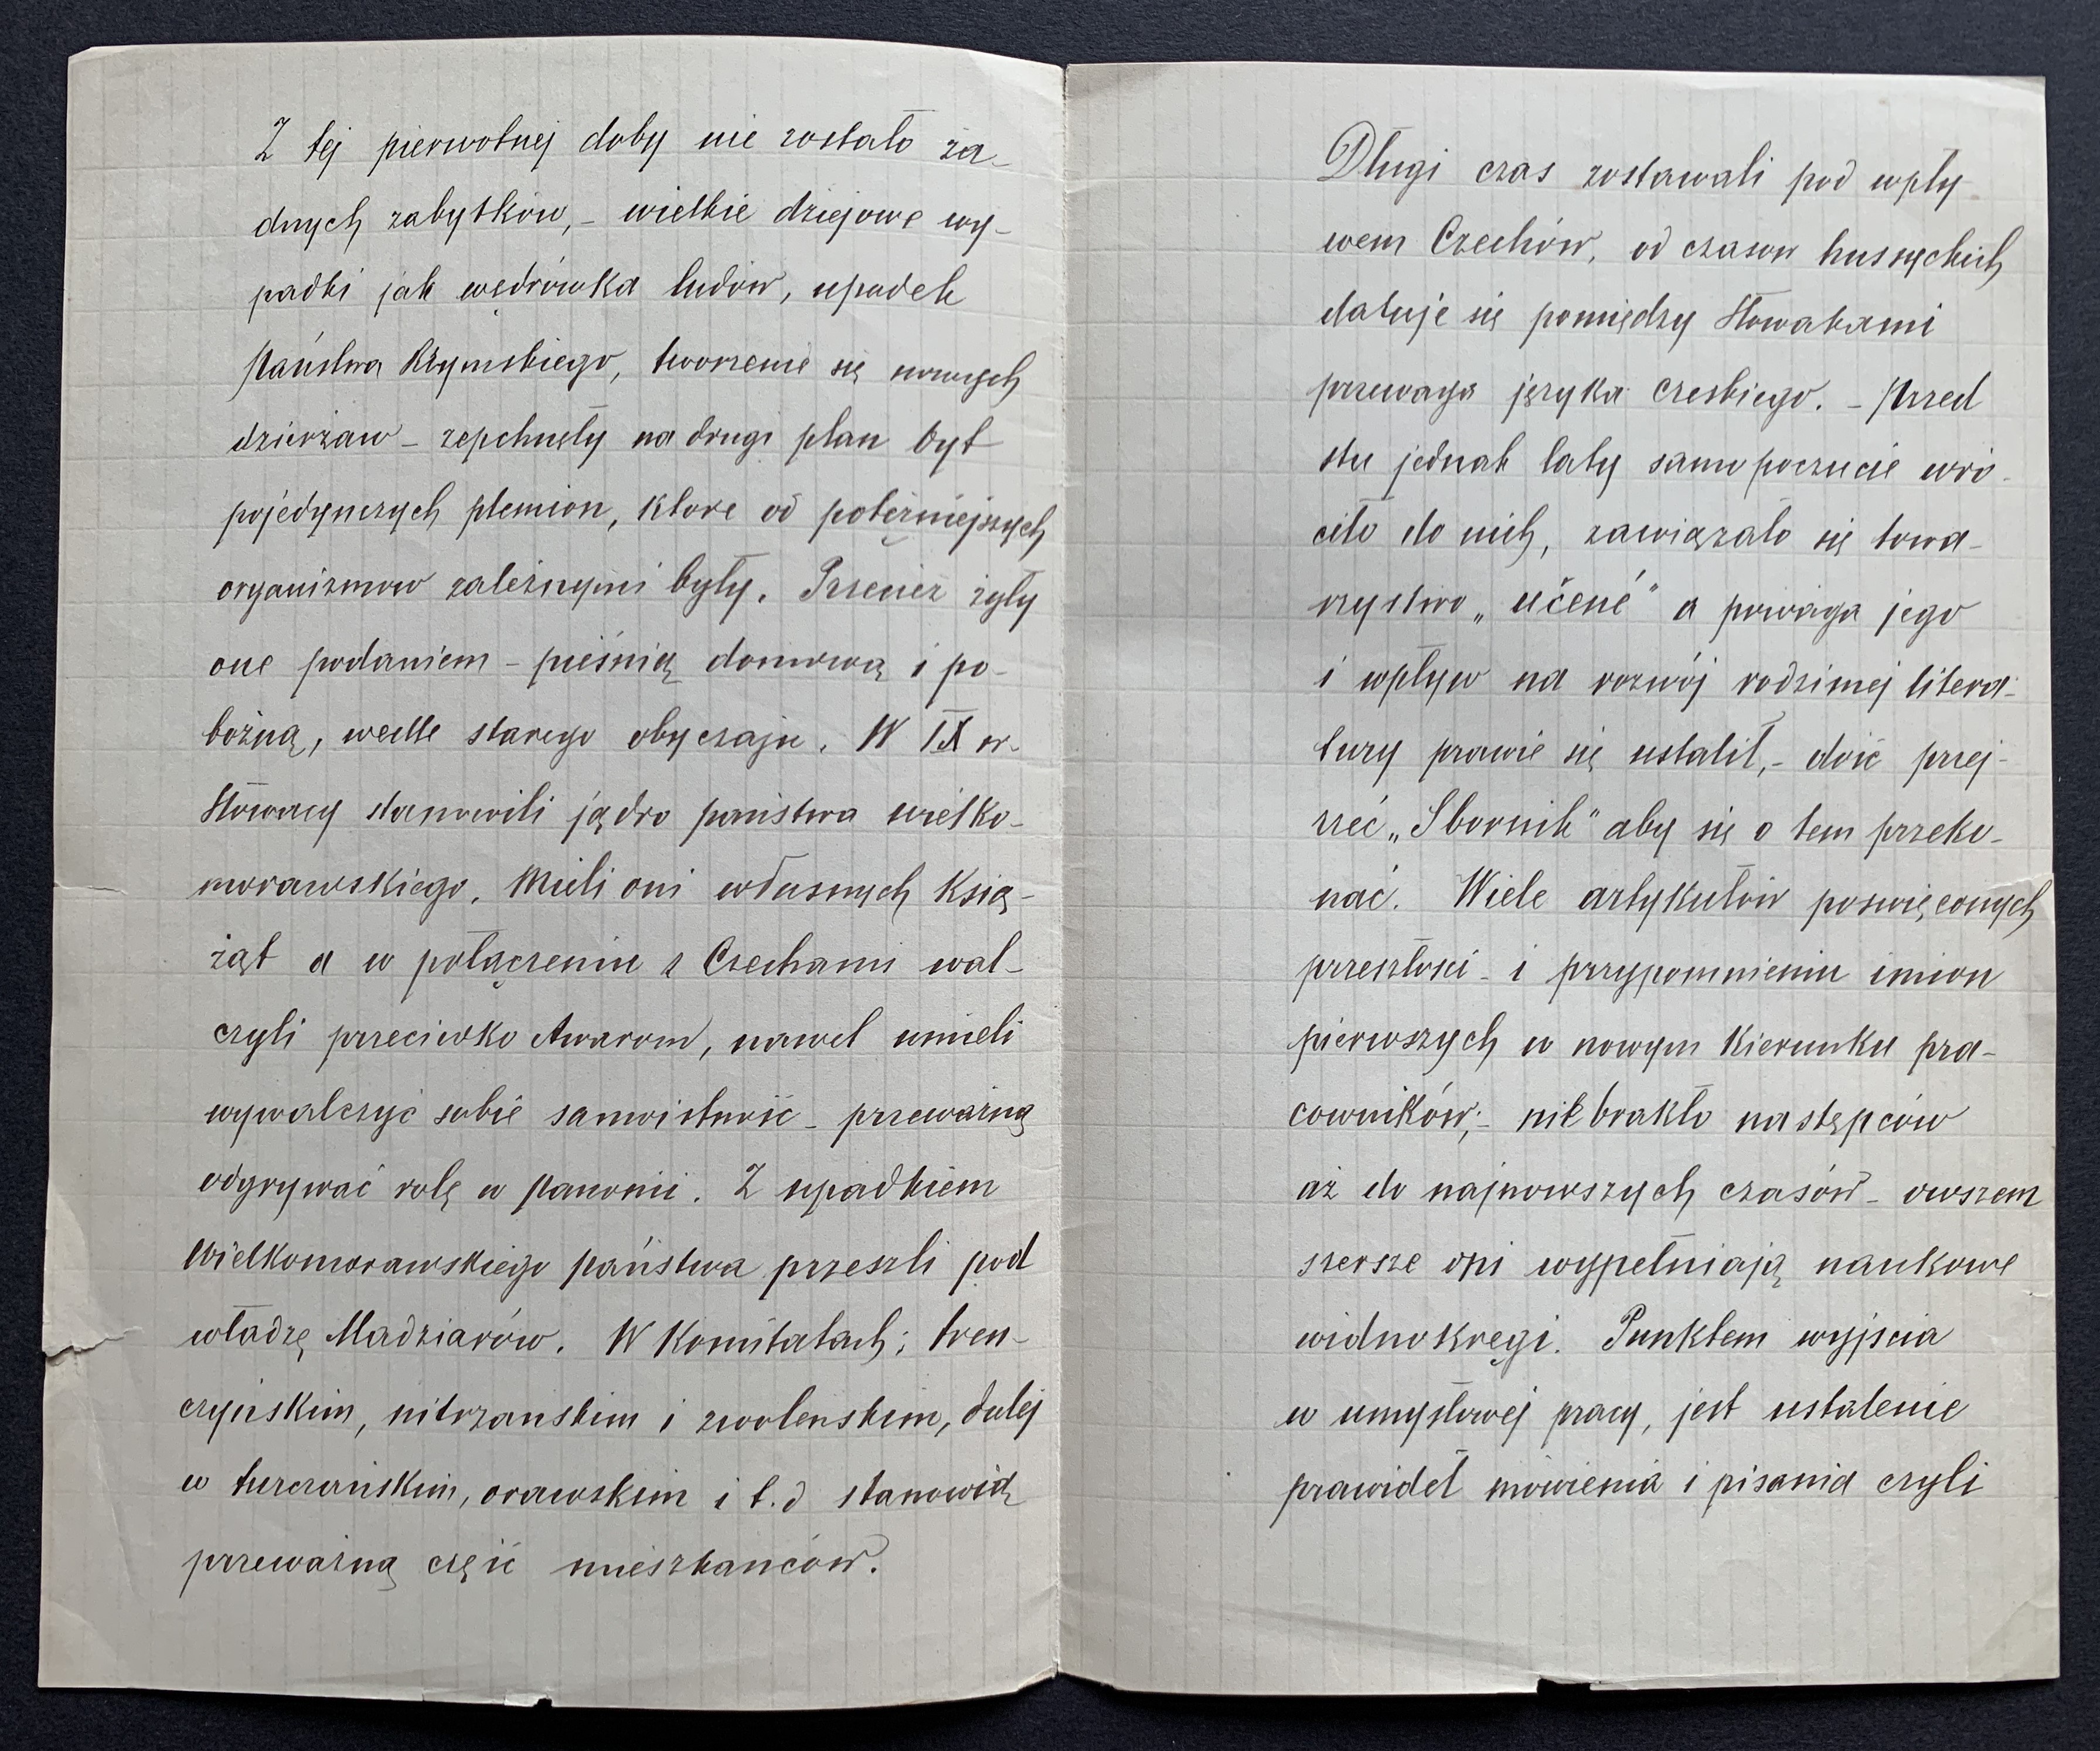 Z tej pierwotnej doby nie zostało ża-
dnych zabytków, - wielkie dziejowe wy-
padki jak wędrówka ludów, upadek
państwa Rzymskiego, tworzenie się nowych
dzierżaw - zepchnęły na drugi plan byt
pojedynczych plemion, ktore od potężniejszych
organizmow zależnymi były. Przecież żyły
one podaniem - pieśnią domową i po-
bożną, wedle starego obyczaju. W IX w.
Słowacy stanowili jądro państwa wielko-
morawskiego. Mieli oni własnych ksią-
żąt a w połączeniu z Czechami wal-
czyli przeciwko Awarom, nawet umieli
wywalczyć sobie samoistność - przeważną
odgrywać rolę w Panonii. Z upadkiem
Wielkomorawskiego państwa przeszli pod
władzę Madziarów. W Komitatach; tren-
czyńskim, nitrzanskim i zwolenskim, dalej
w turczańskim, orawskim i t.d stanowią
przeważną część mieszkanców.
Długi czas zostawali pod wpły-
wem Czechów, od czasow husyckich
datuje się pomiędzy Słowakami
przewaga języka czeskiego. - Przed
stu jednak laty samopoczucie wró-
ciło do nich, zawiązało się towa-
rzystwo „učené" a powaga jego
i wpływ na rozwój rodzimej litera-
tury prawie się ustalił, - dość przej-
rzeć „Sbornik" aby się o tem przeko-
nać. Wiele artykułów poswięconych
przeszłosci - i przypomnieniu imion
pierwszych w nowym kierunku pra-
cowników; - nie brakło następców
aż do najnowszych czasów - owszem
szersze oni wypełniają naukowe
widnokręgi. Punktem wyjscia
w umysłowej pracy, jest ustalenie
prawideł mówienia i pisania czyli